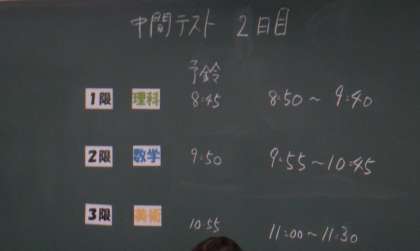 中間テスト 2日目
予鈴
1限 理科 8:45 8:50～9:40
2限 数学 9:50 9:55～10:45
3限 美術 10:55 11:00～11:30